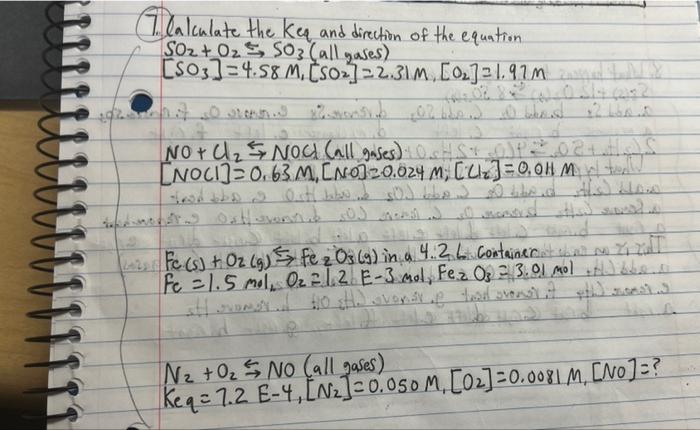 7. Calculate the Keq and direction of the equation
SO2 + O2 ⇆ SO3 (all gases)
[SO3] = 4.58 M, [SO2] = 2.31 M, [O2] = 1.97 M
NO + Cl2 ⇆ NOCl (all gases)
[NOCl] = 0.63 M, [NO] = 0.024 M, [Cl2] = 0.011 M
Fe(s) + O2(g) ⇆ Fe2O3(g) in a 4.2 L Container
Fe = 1.5 mol, O2 = 1.2 E-3 mol, Fe2O3 = 3.01 mol
N2 + O2 ⇆ NO (all gases)
Keq = 7.2 E-4, [N2] = 0.050 M, [O2] = 0.0081 M, [NO] = ?